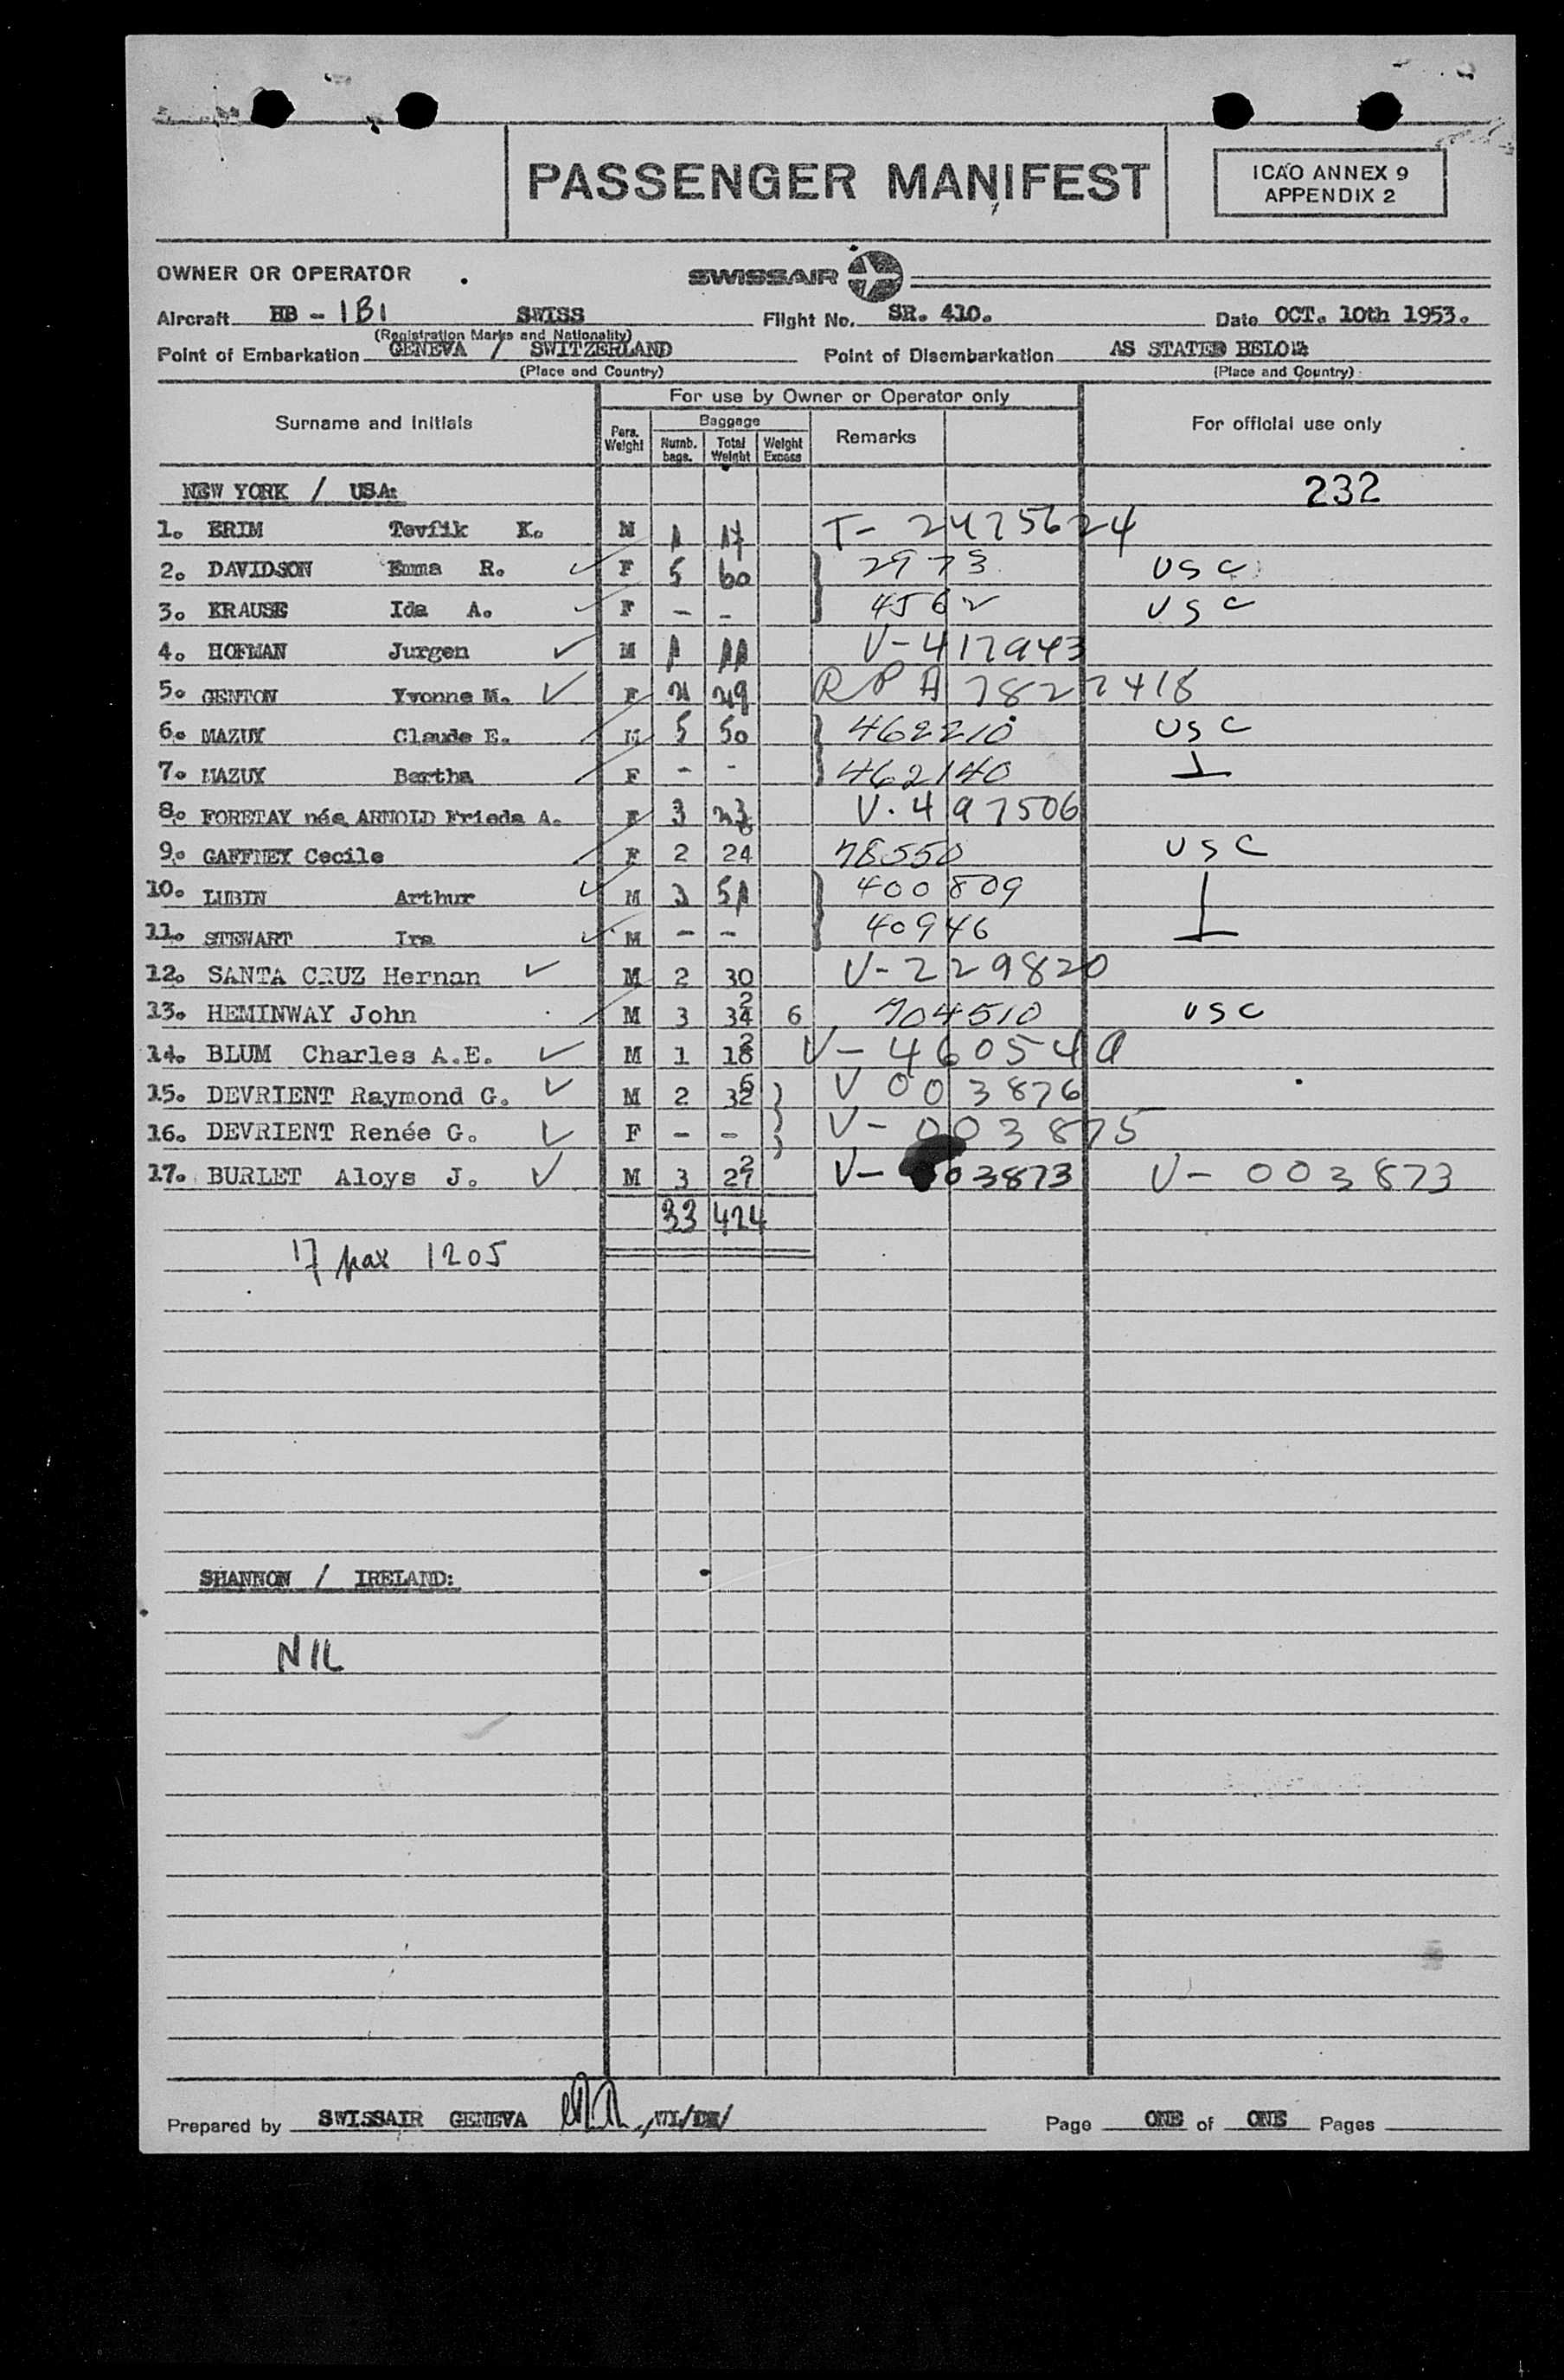 PASSENGER MANIFEST
ICAO ANNEX 9
APPENDIX 2
OWNER OR OPERATOR
SWISSAIR
Aircraft HB - IBI SWISS Flight No. SR. 410. Date OCT. 10th 1953.
(Registration Marks and Nationality)
Point of Embarkation GENEVA / SWITZERLAND Point of Disembarkation AS STATED BELOW
(Place and Country) (Place and Country)
For use by Owner or Operator only
Surname and Initials Pers. Weight Baggage Remarks For official use only
Numb. bags. Total Weight Weight Excess
NEW YORK / USA: 232
1. ERIM Tevfik K. M 1 17 T- 2475624
2. DAVIDSON Emma R. F 5 60 2973 USC
3. KRAUSE Ida A. F - - 4562 USC
4. HOFMAN Jurgen M 1 11 V-417943
5. GENTON Yvonne M. F 2 29 RPA 7827418
6. MAZUY Claude E. M 5 50 462210 USC
7. MAZUY Bertha F - - 462140
8. FORETAY née ARNOLD Frieda A. F 3 V. 497506
9. GAFFNEY Cecile F 2 24 78550 USC
10. LUBIN Arthur M 3 51 400809
11. STEWART Ira M - - 40946
12. SANTA CRUZ Hernan M 2 30 V-229820
13. HEMINWAY John M 3 34 2 6 704510 USC
14. BLUM Charles A.E. M 1 18 2 V-460549
15. DEVRIENT Raymond G. M 2 32 6 V 003876
16. DEVRIENT Renée G. F - - V-003875
17. BURLET Aloys J. M 3 27 2 V-003873 V-003873
33 424
17 pax 1205
SHANNON / IRELAND:
NIL
Prepared by SWISSAIR GENEVA ,WI/DE/ Page ONE of ONE Pages